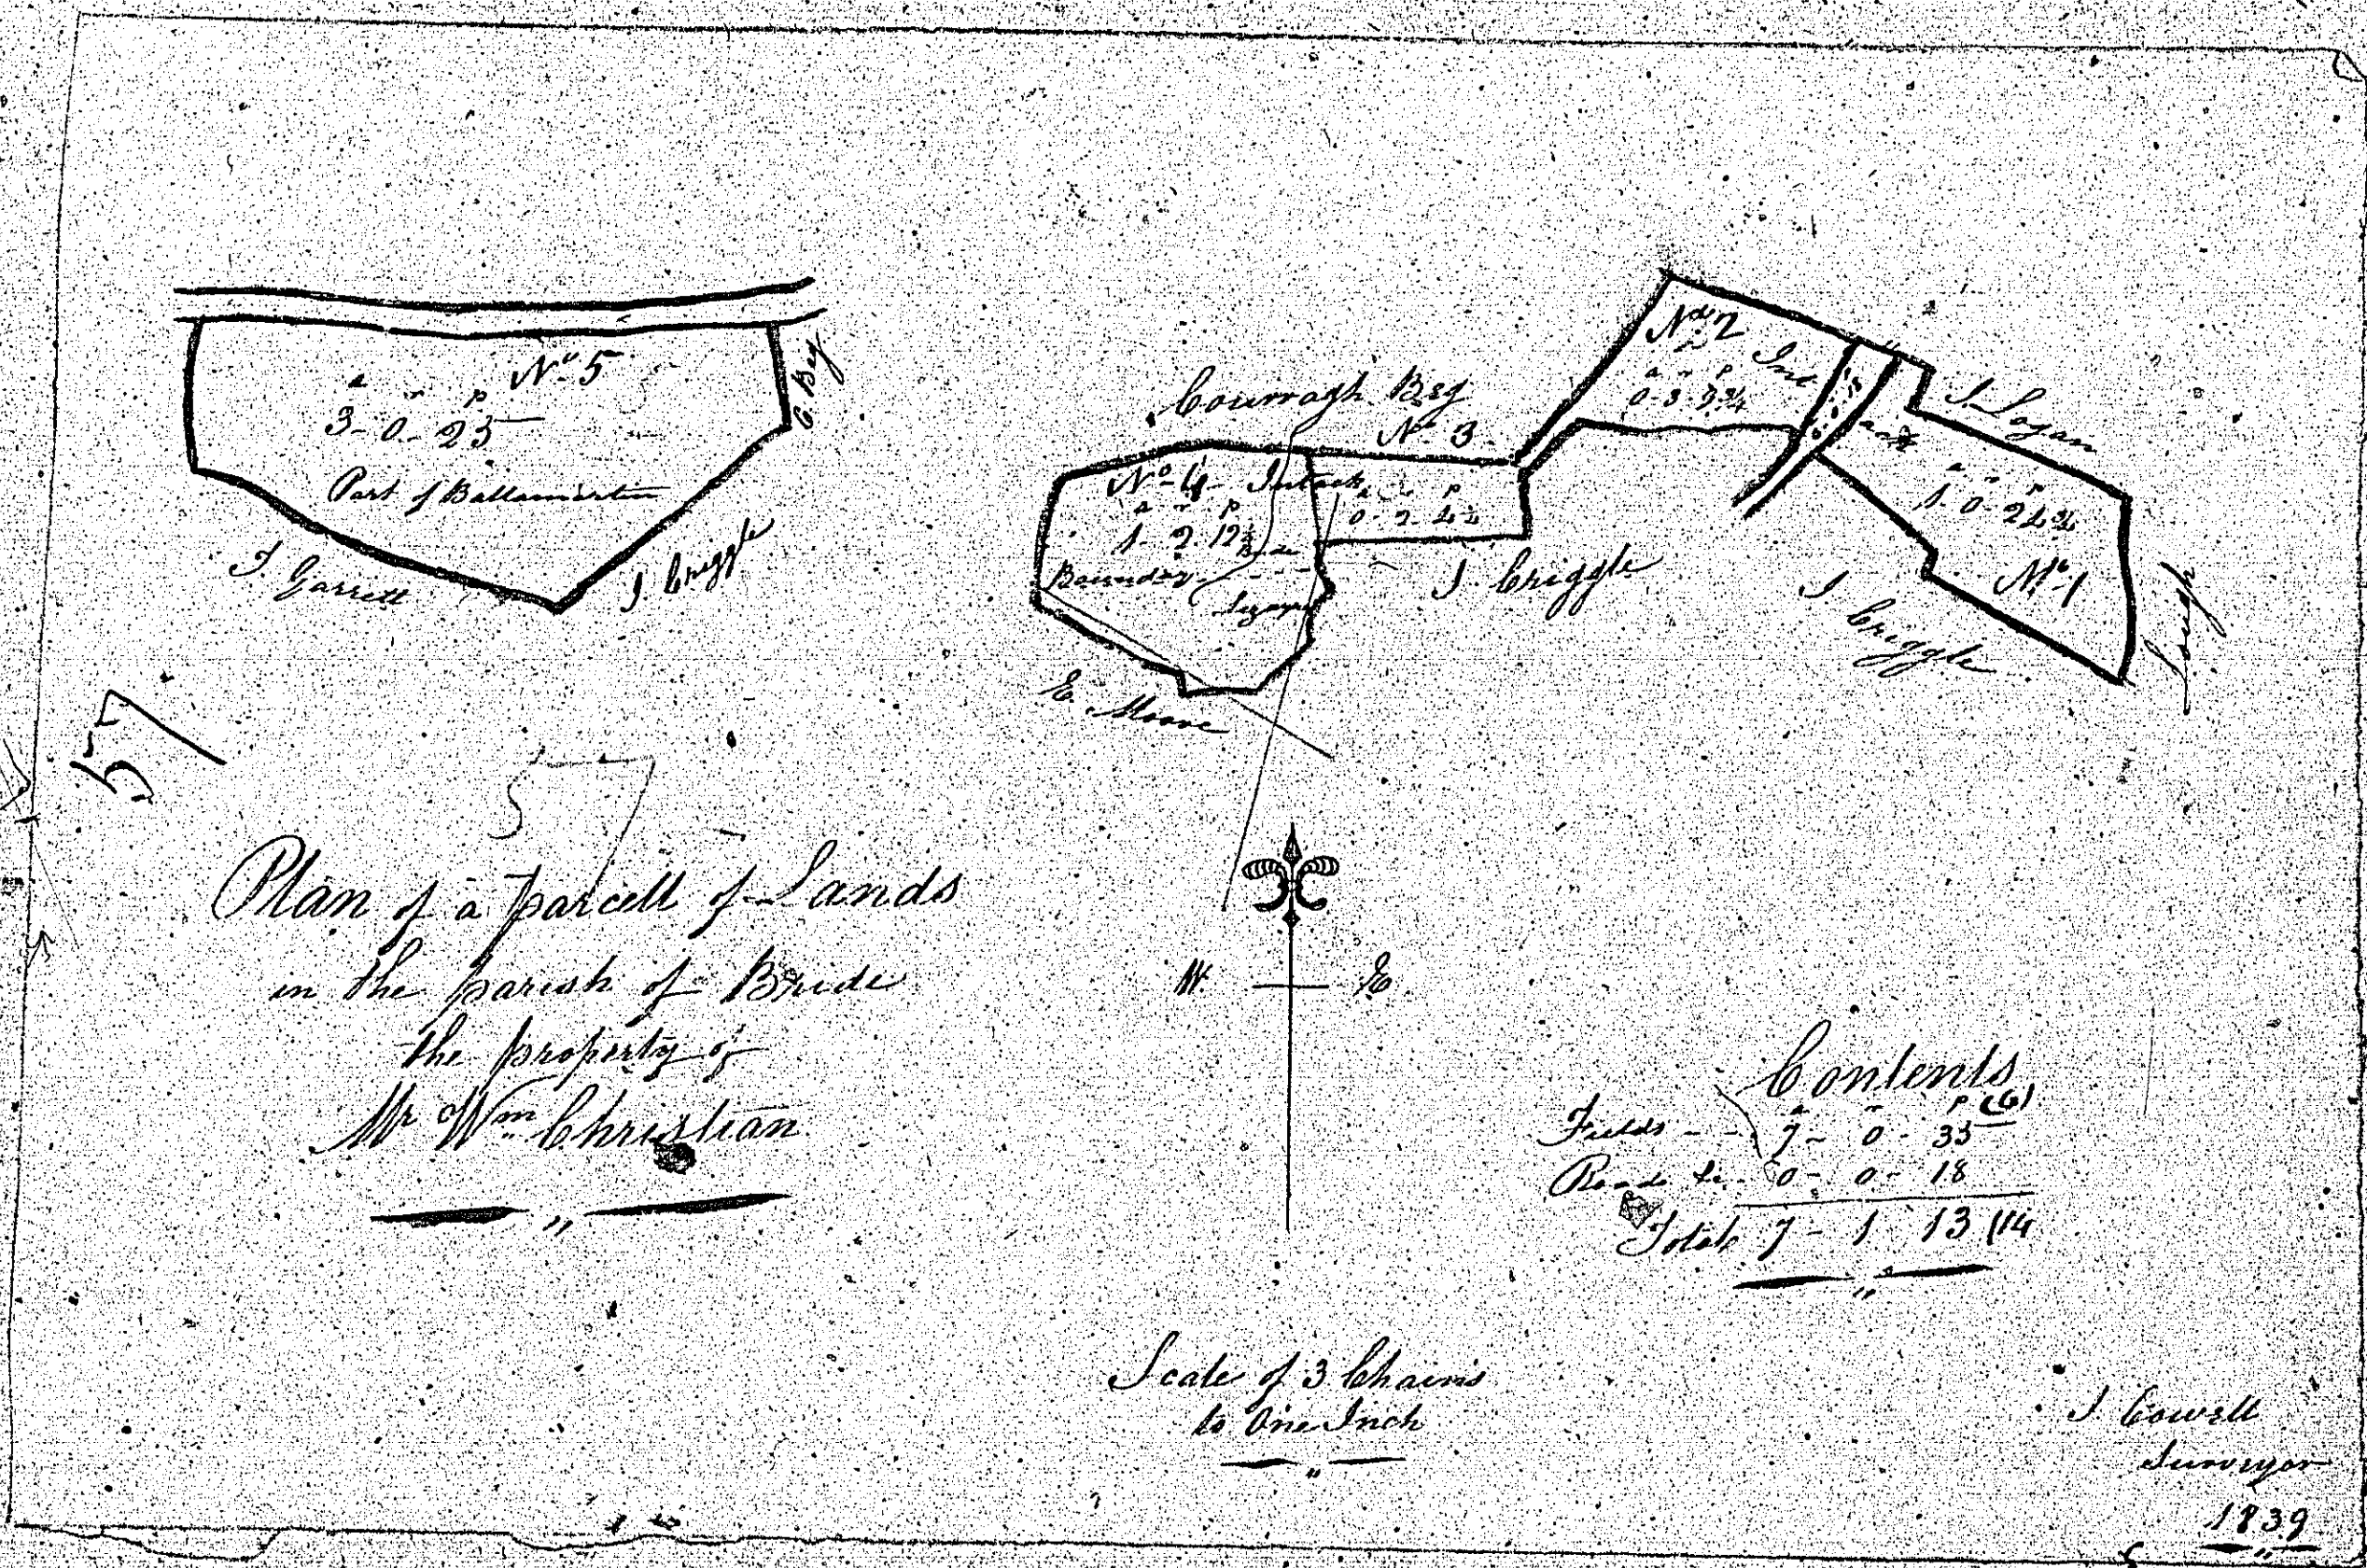 No 5
a r p
3 - 0 - 23
Part of Ballamartin
C. Beg
J. Garrett
J. Criggle
Courragh Beg
No 3
No 4 Intack
a r p
1 - 2 - 12½
Boundary
Lezayre
E. Moore
a r p
0 - 2 - 4½
J. Criggle
No 2
a r p
0 - 3 - 9¾
Int
ack
J. Logan
a r p
1 - 0 - 24¾
No 1
J Criggle
Lough
57
57
Plan of a parcell of Lands
in the parish of Bride
the property of
Mr Wm Christian
W E
Contents
a r p (6)
Fields - - 7 - 0 - 35
Roads &c. 0 - 0 - 18
Total 7 - 1 13 (14
Scale of 3 Chains
to One Inch
J. Cowell
Surveyor
1839